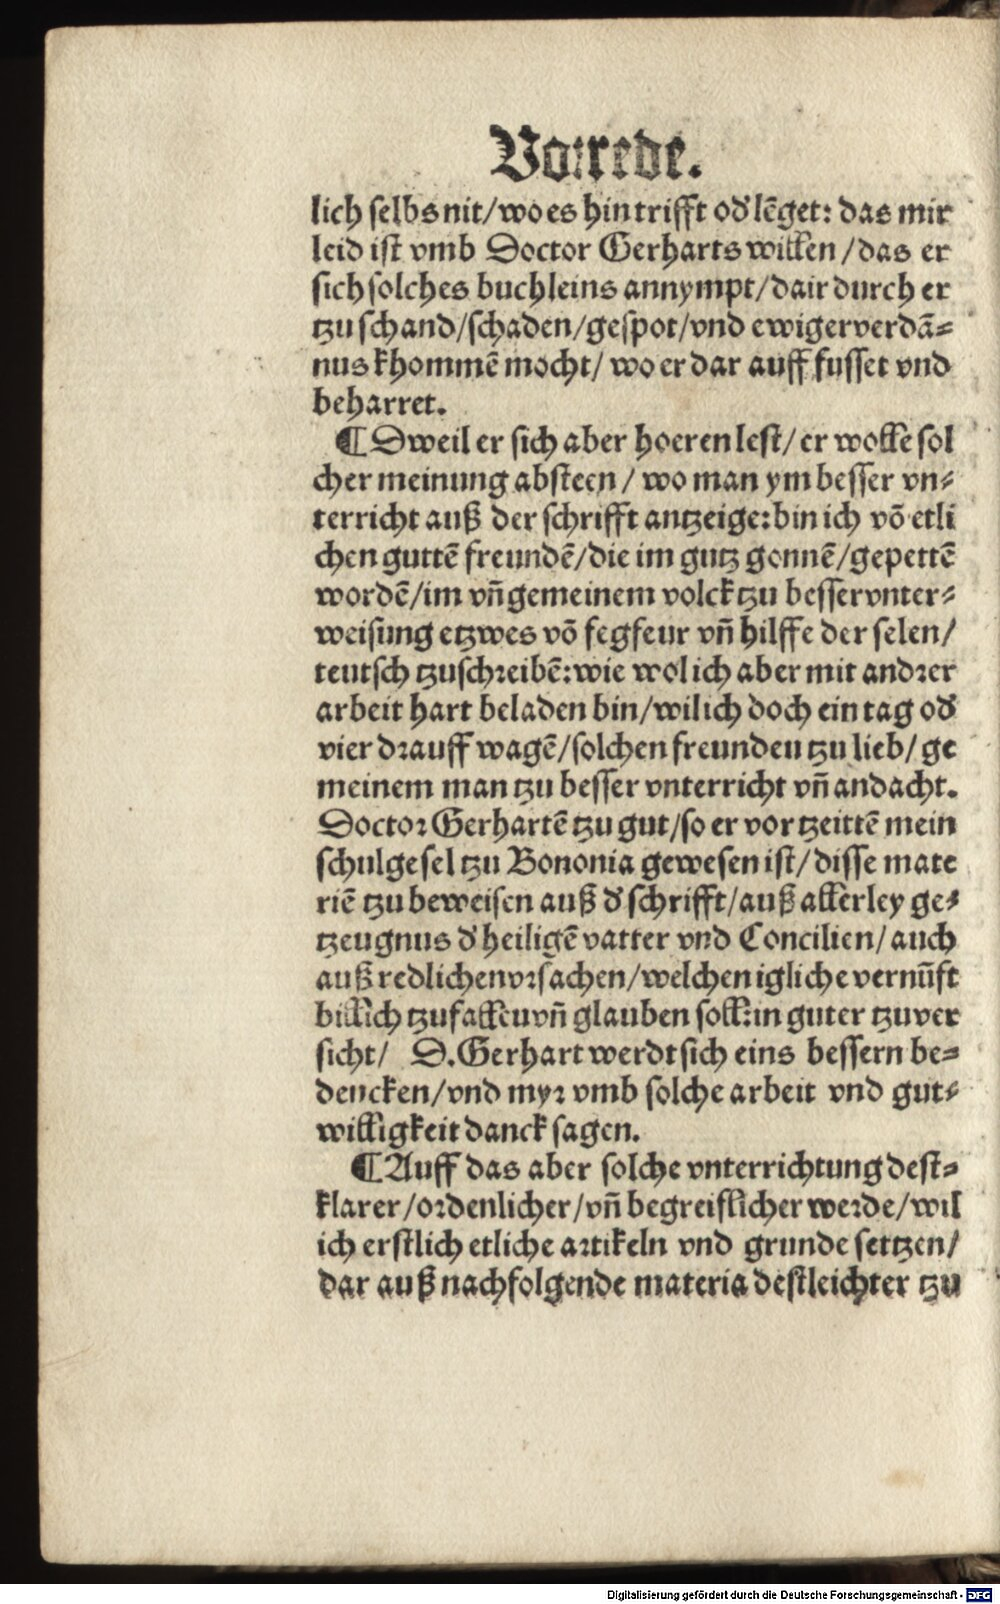 Vorrede.
lich selbs nit/wo es hintrifft od' lēget: das mir
leid ist vmb Doctor Gerharts willen/das er
sich solches buchleins annympt/dair durch er
tzu schand/schaden/gespot/vnd ewiger verdā⸗
nus khommē mocht/ wo er dar auff fusset vnd
beharret.
¶ Dweil er sich aber hoeren lest/er wolle sol
cher meinung absteen/ wo man ym besser vn⸗
terricht auß der schrifft antzeige:bin ich vō etli
chen guttē freundē/die im gutz gonnē/gepettē
wordē/im vn̄ gemeinem volck tzu besser vnter⸗
weisung etzwes vō fegfeur vn̄ hilffe der selen/
teutsch tzuschreibē:wie wol ich aber mit andrer
arbeit hart beladen bin/wil ich doch ein tag od'
vier drauff wagē/solchen freunden tzu lieb/ge
meinem man tzu besser vnterricht vn̄ andacht.
Doctor Gerhartē tzu gut/so er vor tzeittē mein
schulgesel tzu Bononia gewesen ist/disse mate
riē tzu beweisen auß d' schrifft/auß allerley ge⸗
tzeugnus d' heiligē vatter vnd Concilien/auch
auß redlichen vrsachen/welchen igliche vernūft
billich tzufallen vn̄ glauben soll:in guter tzuver
sicht/ D.Gerhart werdt sich eins bessern be⸗
dencken/vnd myr vmb solche arbeit vnd gut⸗
willigkeit danck sagen.
¶ Auff das aber solche vnterrichtung dest⸗
klarer/ordenlicher/vn̄ begreiflicher werde/wil
ich erstlich etliche artikeln vnd grunde settzen/
dar auß nachfolgende materia destleichter tzu
Digitalisierung gefördert durch die Deutsche Forschungsgemeinschaft - DFG